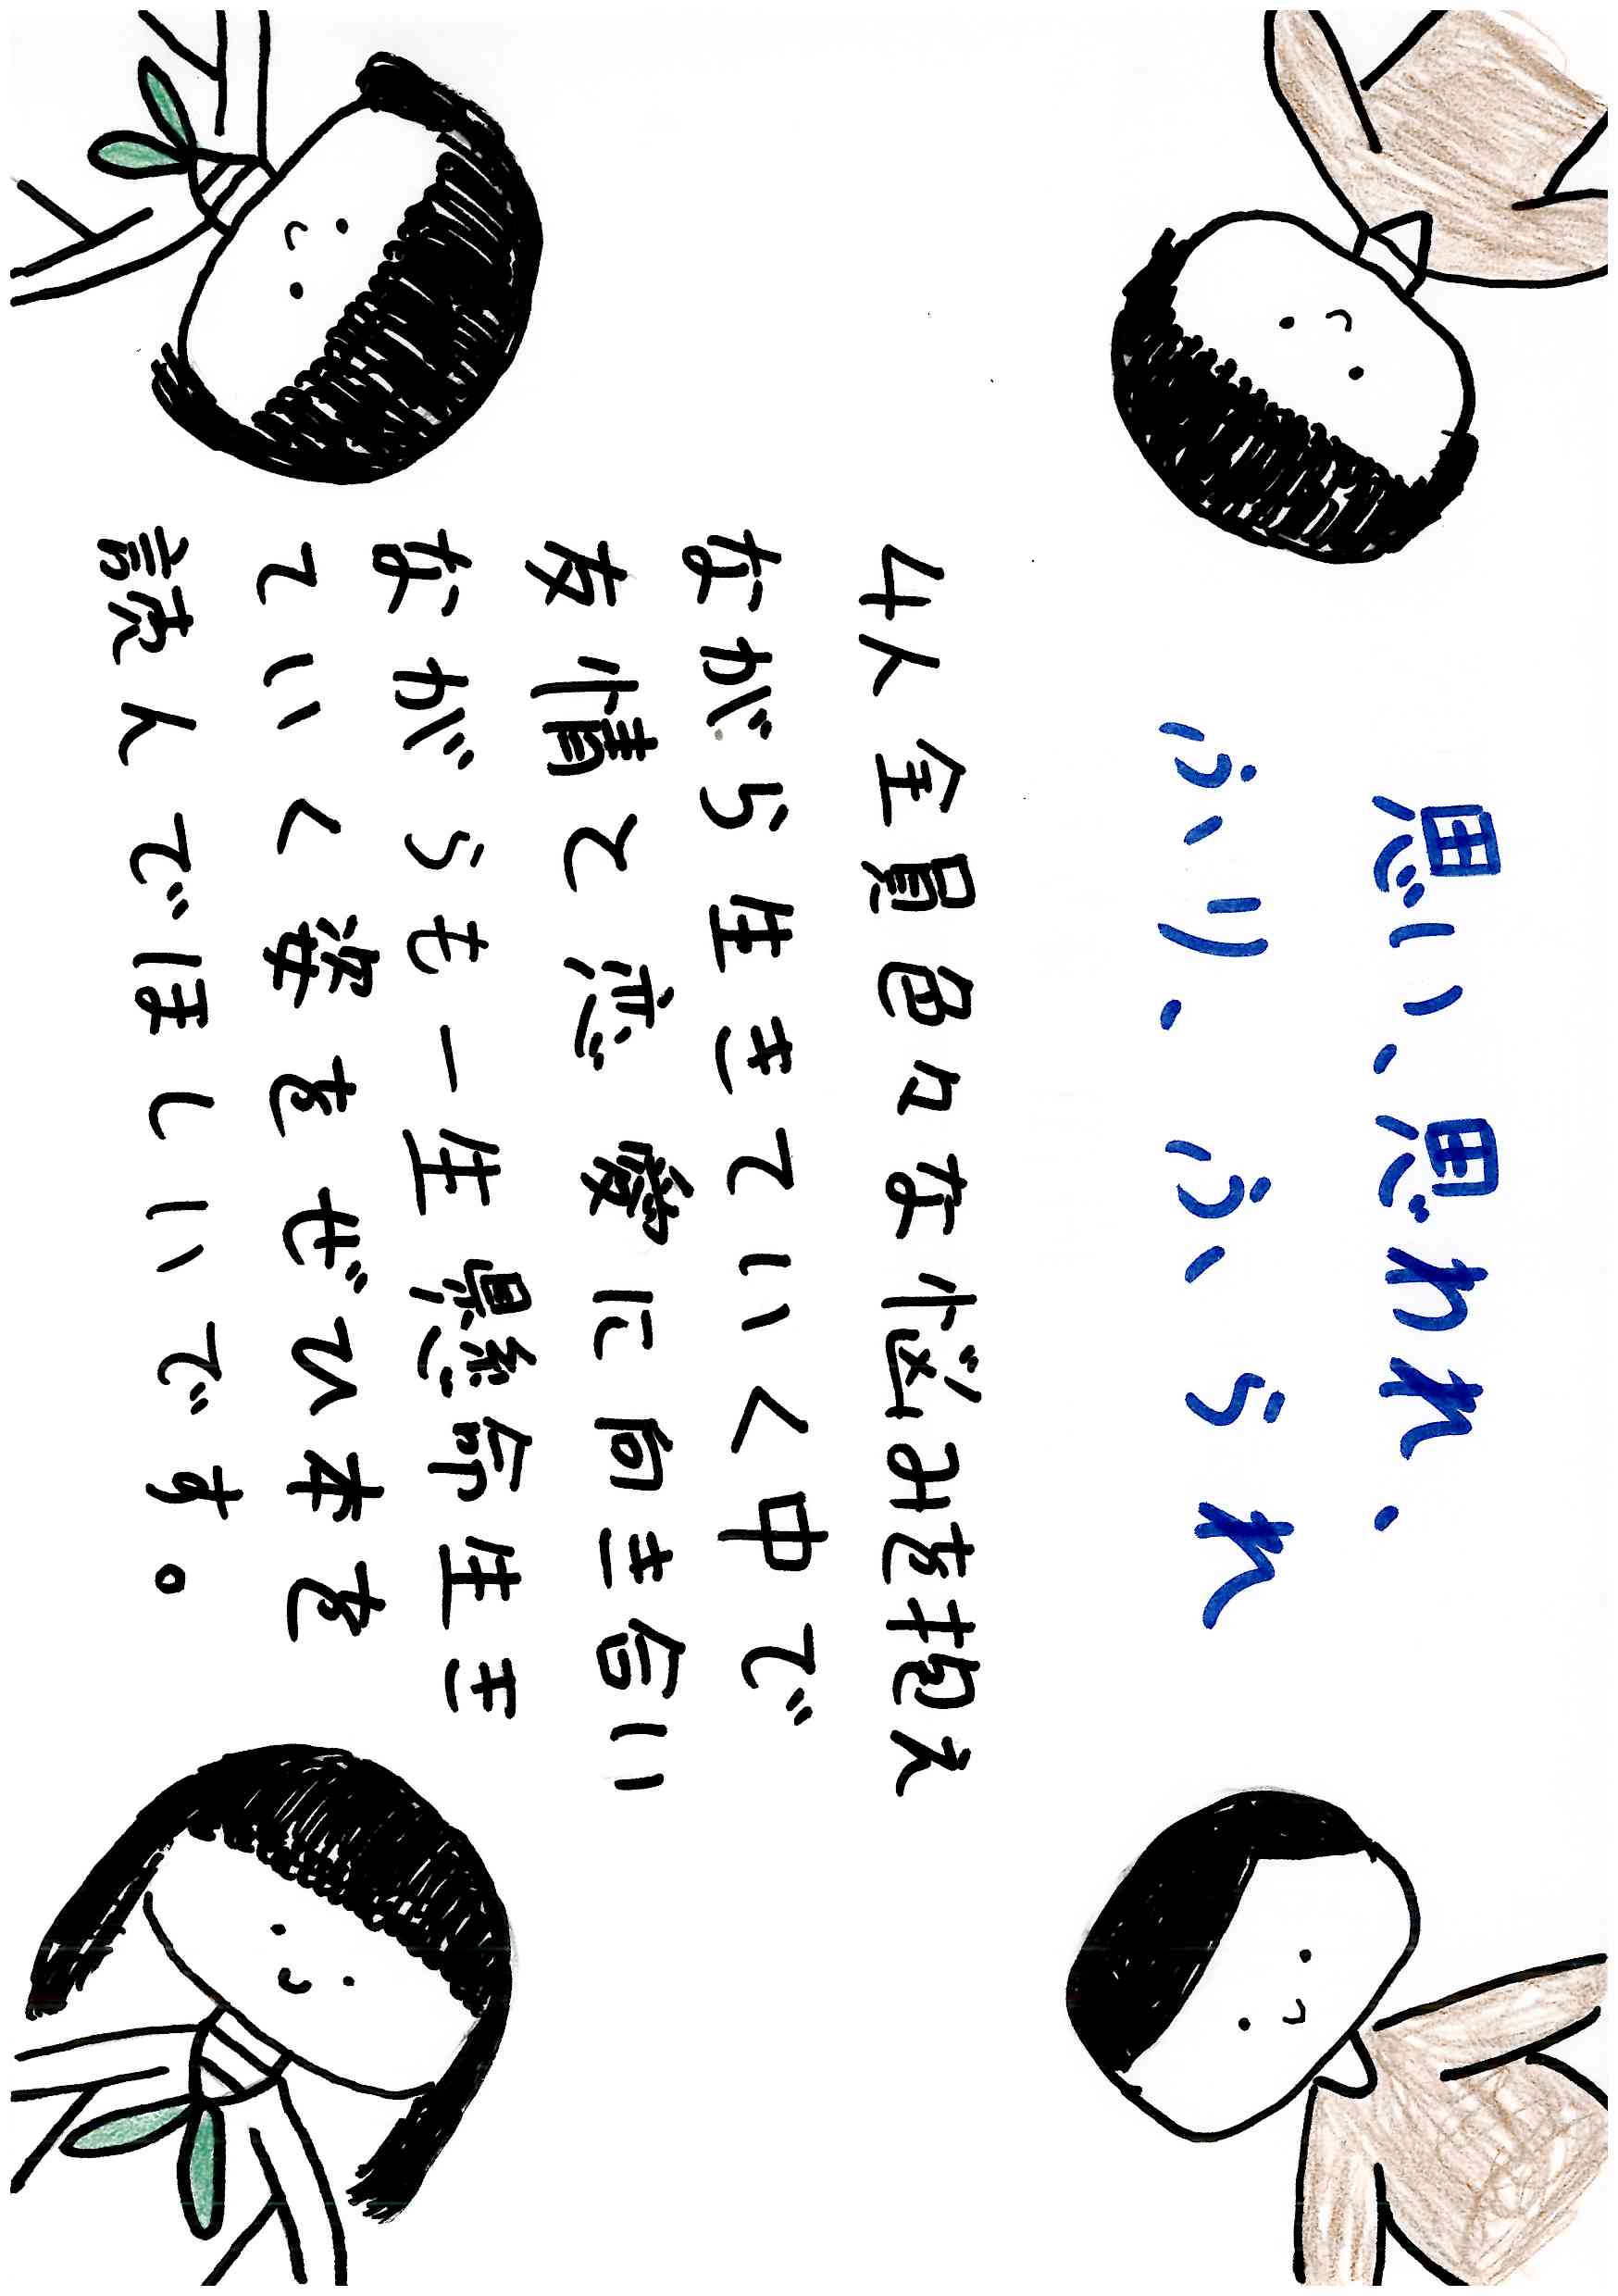 思い、思われ、
ふり、ふられ
4人全員色々な悩みを抱え
ながら生きていく中で
友情と恋愛に向き合い
ながらも一生懸命生き
ていく姿をぜひ本を
読んでほしいです。